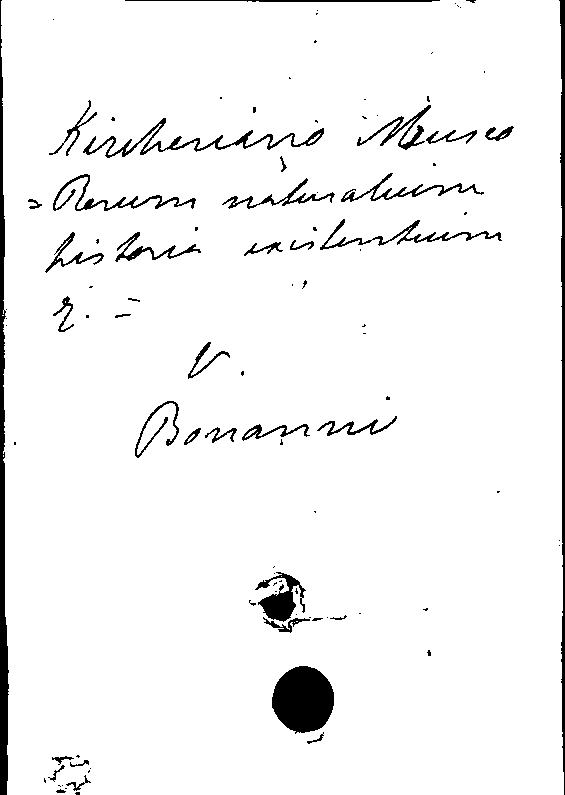 Kircheriano Museo
= Rerum naturalium
historia existentium
&. =
V.
Bonanni